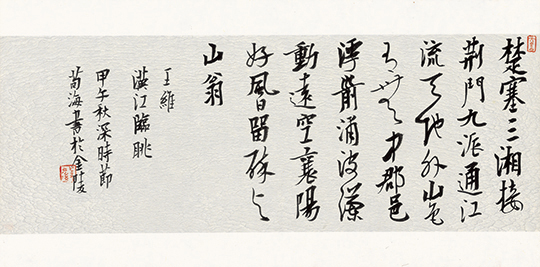 楚塞三湘接
荊門九派通江
流天地外山色
有無中郡邑
浮前浦波瀾
動遠空襄陽
好風日留醉与
山翁
王維
漢江臨眺
甲午秋深時節
海書於金陵